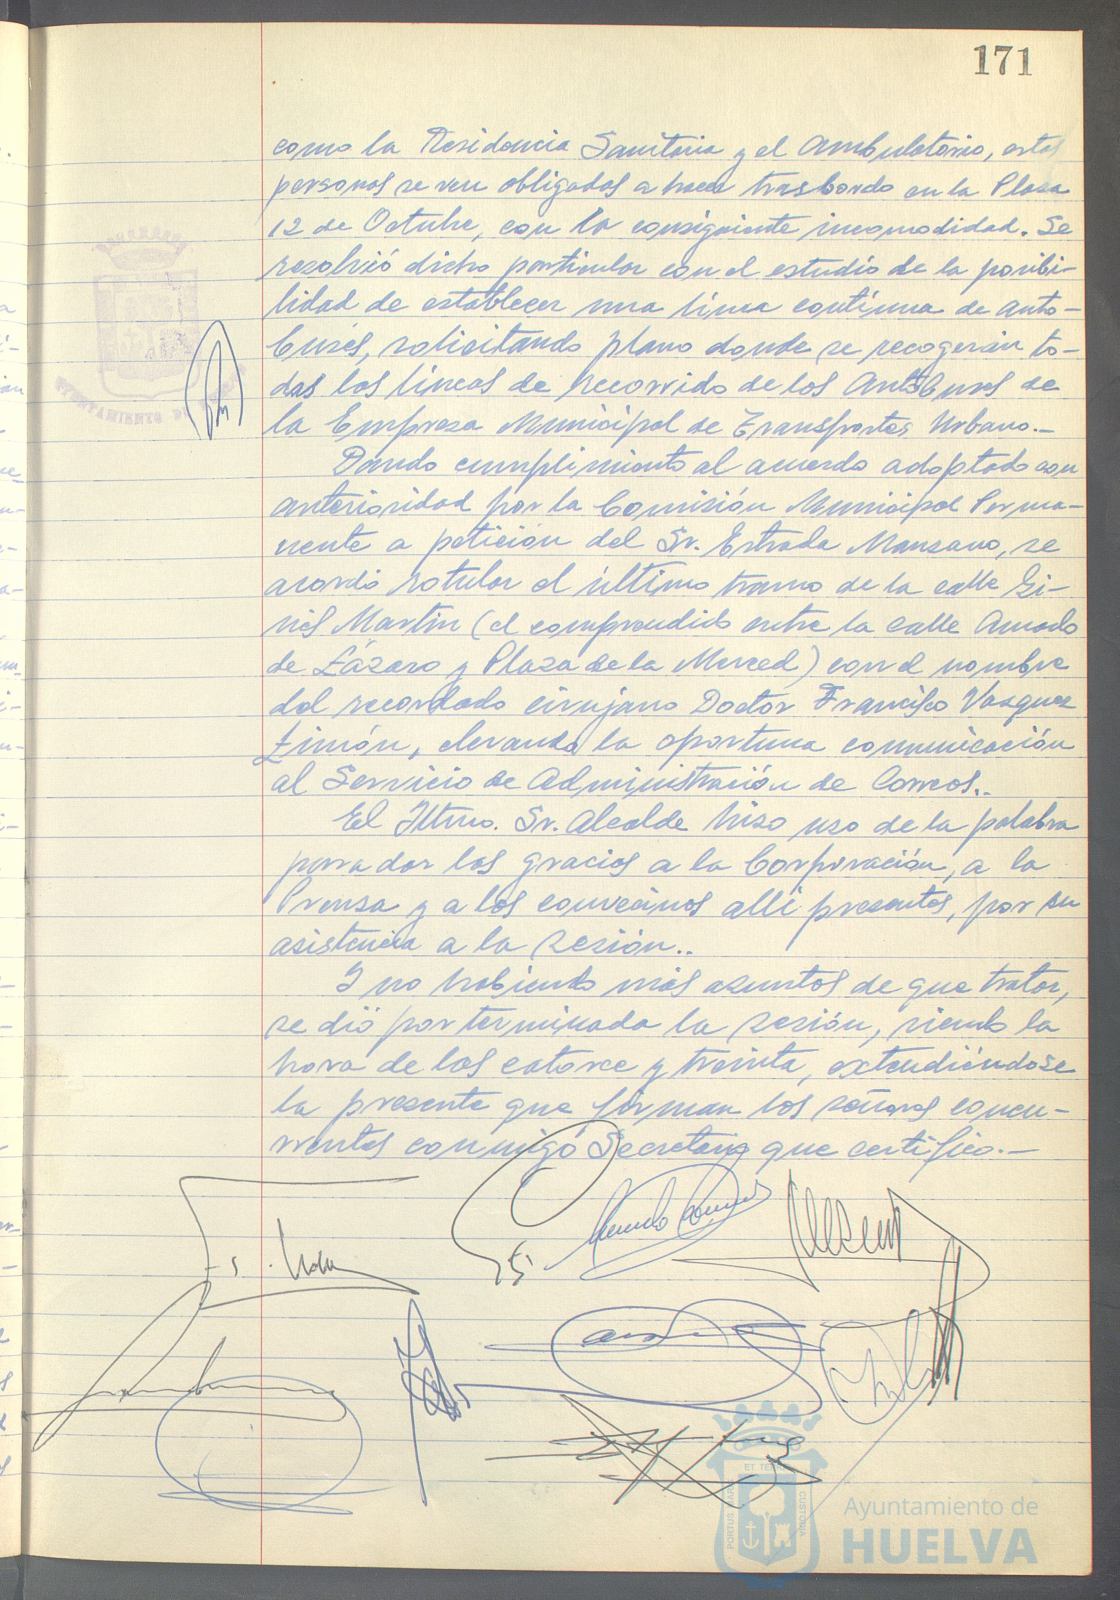 171
como la Residencia Sanitaria y el Ambulatorio, estas
personas se ven obligadas a hacer trasbordo en la Plaza
12 de Octubre, con la consiguiente incomodidad. Se
resolvió dicho particular con el estudio de la posibi-
lidad de establecer una línea continua de auto-
buses, solicitando plano donde se recogerán to-
das las líneas de recorrido de los Autobuses de
la Empresa Municipal de Transportes Urbano.-
Dando cumplimiento al acuerdo adoptado con
anterioridad por la Comisión Municipal Perma-
nente a petición del Sr. Estrada Manzano, se
acordó rotular el último tramo de la calle Gi-
nés Martín (el comprendido entre la calle Amado
de Lázaro y Plaza de la Merced) con el nombre
del recordado cirujano Doctor Francisco Vazquez
Limón, elevando la oportuna comunicación
al Servicio de Administración de Correos..
El Iltmo. Sr. Alcalde hizo uso de la palabra
para dar las gracias a la Corporación, a la
Prensa y a los convecinos alli presentes, por su
asistencia a la sesión..
Y no habiendo más asuntos de que tratar,
se dió por terminada la sesión, siendo la
hora de las catorce y treinta, extendiéndose
la presente que firman los señores concu-
rrentes conmigo Secretario que certifico.-
AYUNTAMIENTO DE HUELVA
PORTUS MARIS
ET TERRAE
CUSTODIA
Ayuntamiento de
HUELVA